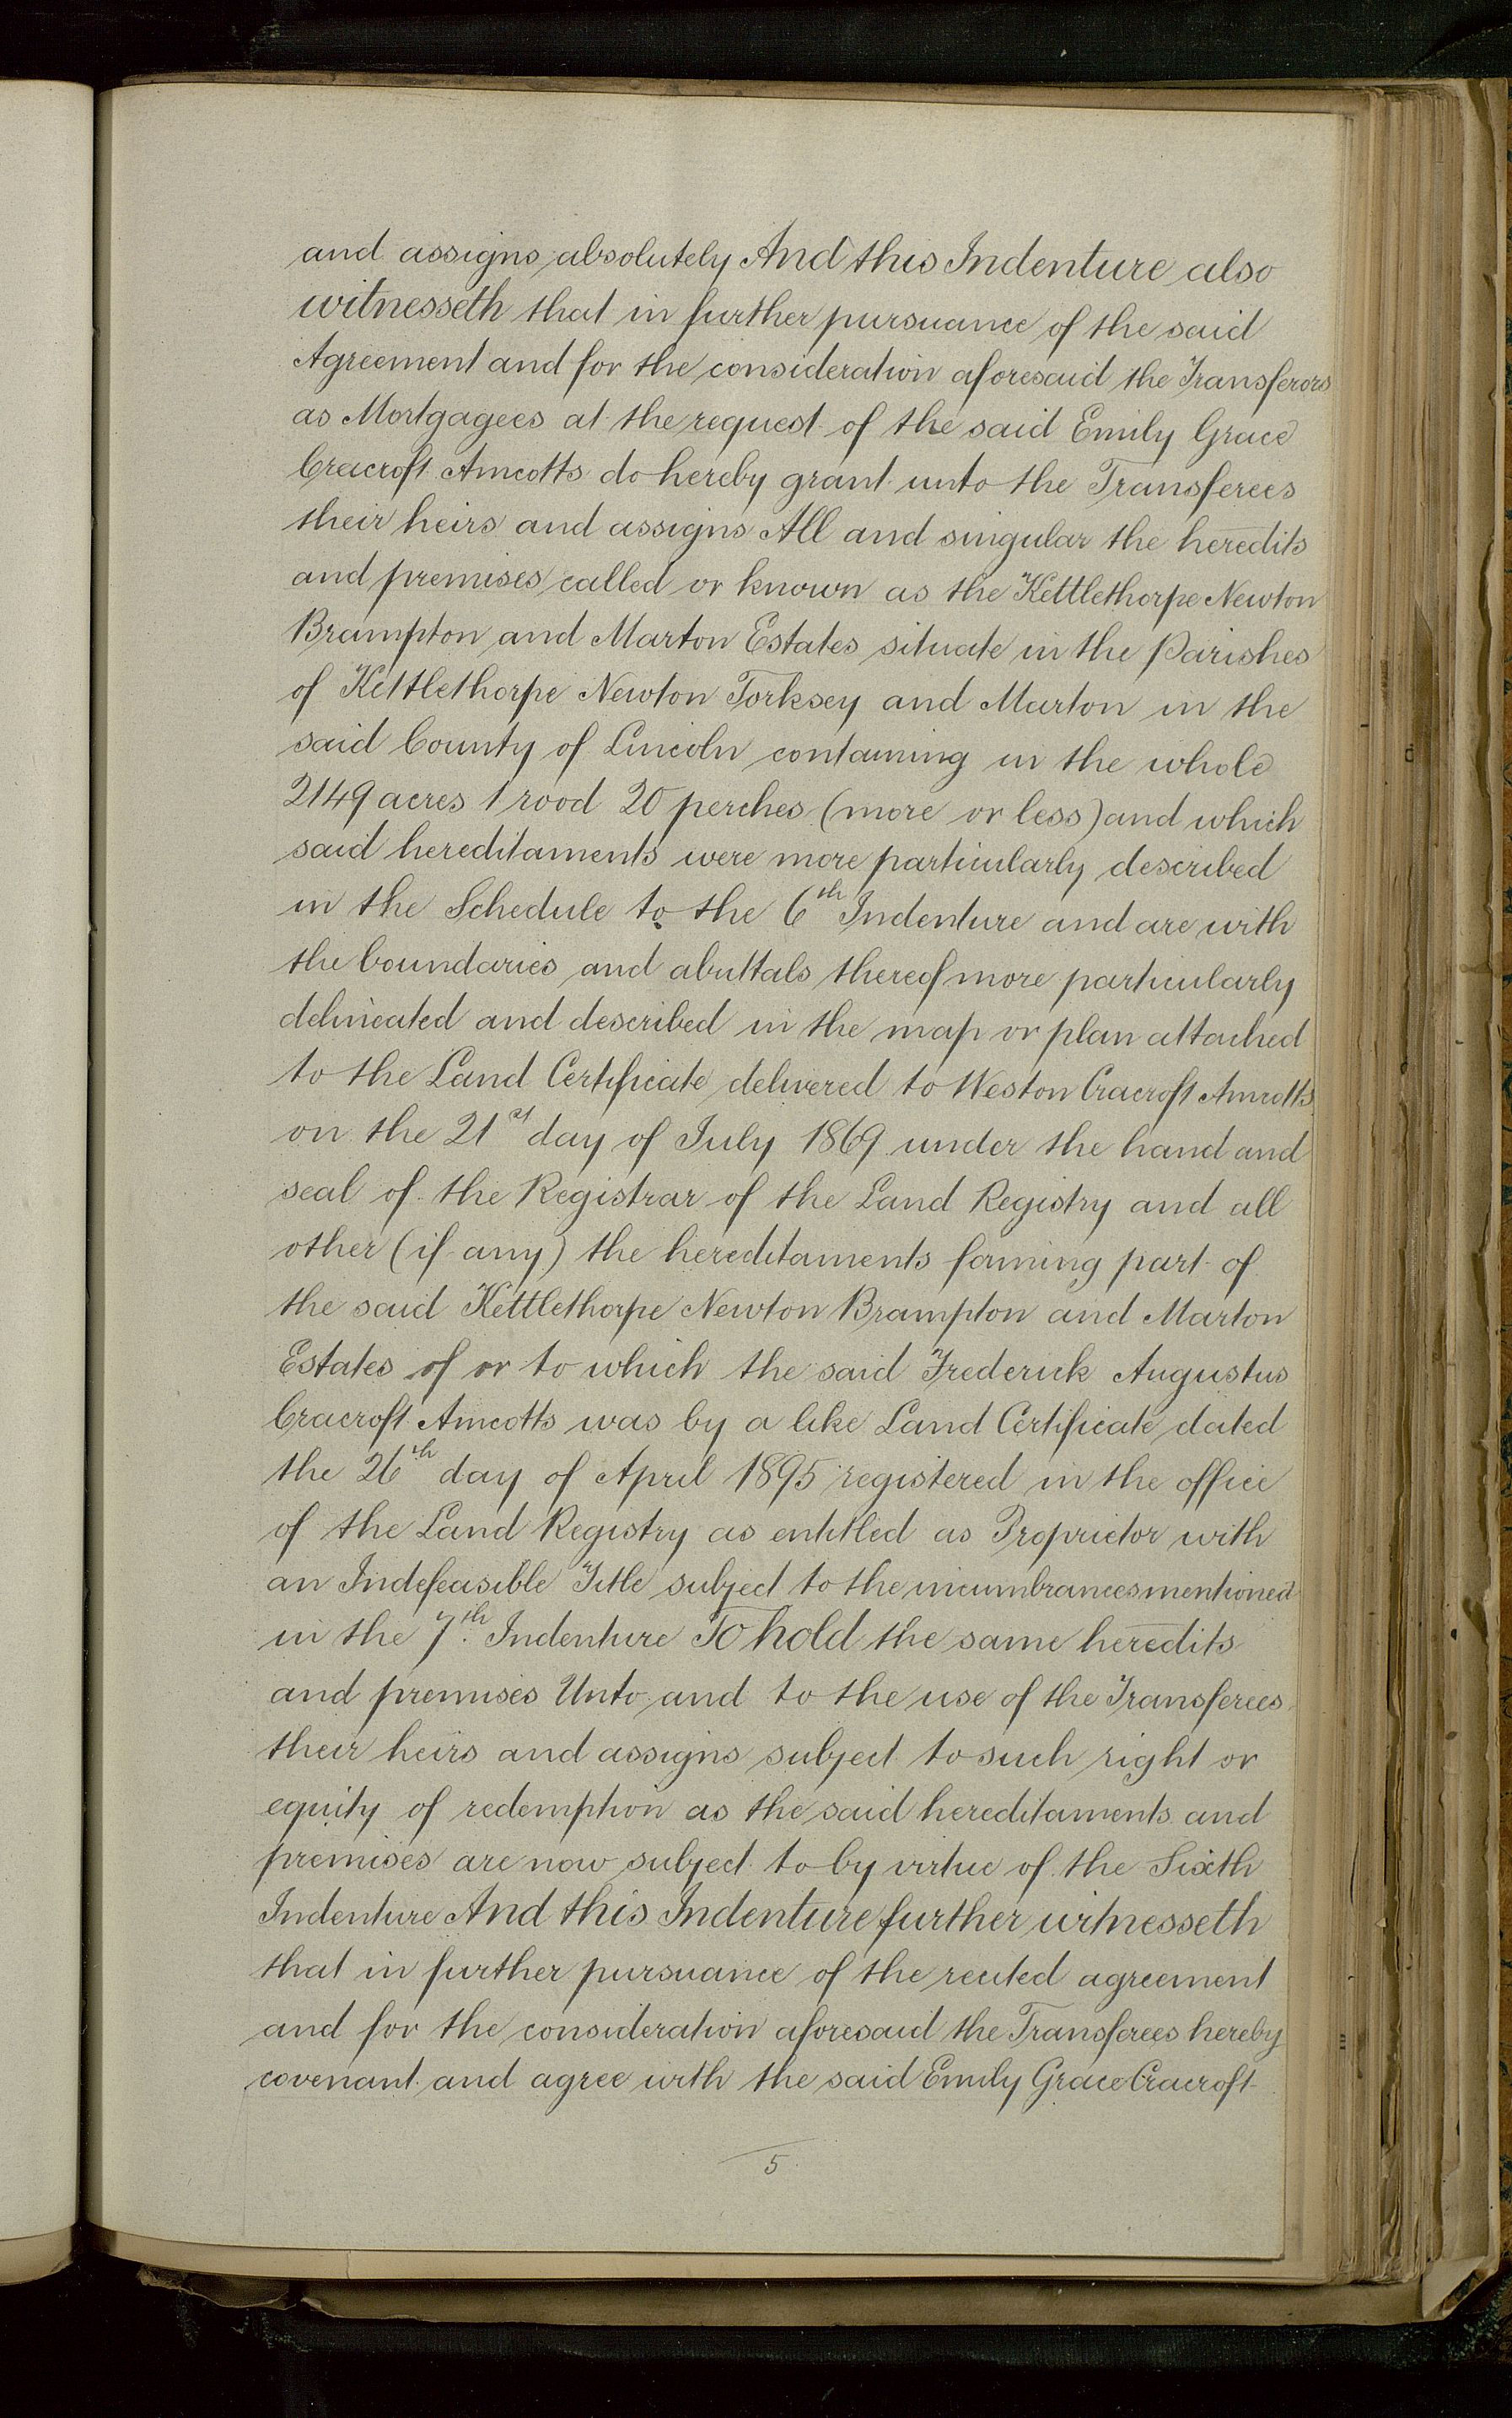 and assigns absolutely And this Indenture also
witnesseth that in further pursuance of the said
Agreement and for the consideration aforesaid the Transferors
as Mortgagees at the request of the said Emily Grace
Cracroft Amcotts do hereby grant unto the Transferees
their heirs and assigns All and singular the heredits
and premises called or known as the Kettlethorpe Newton
Brampton and Marton Estates situate in the Parishes
of Kettlethorpe Newton Torksey and Marton in the
said County of Lincoln containing in the whole
2149 acres 1 rood 20 perches (more or less) and which
said hereditaments were more particularly described
in the Schedule to the 6th Indenture and are with
the boundaries and abuttals thereof more particularly
delineated and described in the map or plan attached
to the Land Certificate delivered to Weston Cracroft Amcotts
on the 21st day of July 1869 under the hand and
seal of the Registrar of the Land Registry and all
other (if any) the hereditaments forming part of
the said Kettlethorpe Newton Brampton and Marton
Estates of or to which the said Frederick Augustus
Cracroft Amcotts was by a like Land Certificate dated
the 26th day of April 1895 registered in the office
of the Land Registry as entitled as Proprietor with
an Indefeasible Title subject to the incumbrances mentioned
in the 7th Indenture To hold the same heredits
and premises Unto and to the use of the Transferees
their heirs and assigns subject to such right or
equity of redemption as the said hereditaments and
premises are now subject to by virtue of the Sixth
Indenture And this Indenture further witnesseth
that in further pursuance of the recited agreement
and for the consideration aforesaid the Transferees hereby
covenant and agree with the said Emily Grace Cracroft
5